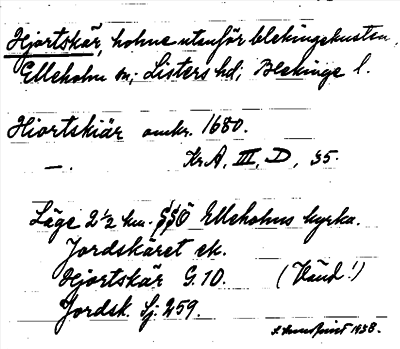 Hjortskär, holme utanför blekingekusten,
Elleholm sn; Listers hd; Blekinge l.
Hiortskiär omkr. 1680.
—. Kr.A, III, D, 35.
Läge 2 1/2 km. SSÖ Elleholms kyrka.
Jordskäret ek.
Hjortskär G.10. (Vänd!)
Jordsk. Sj: 259.
1938.